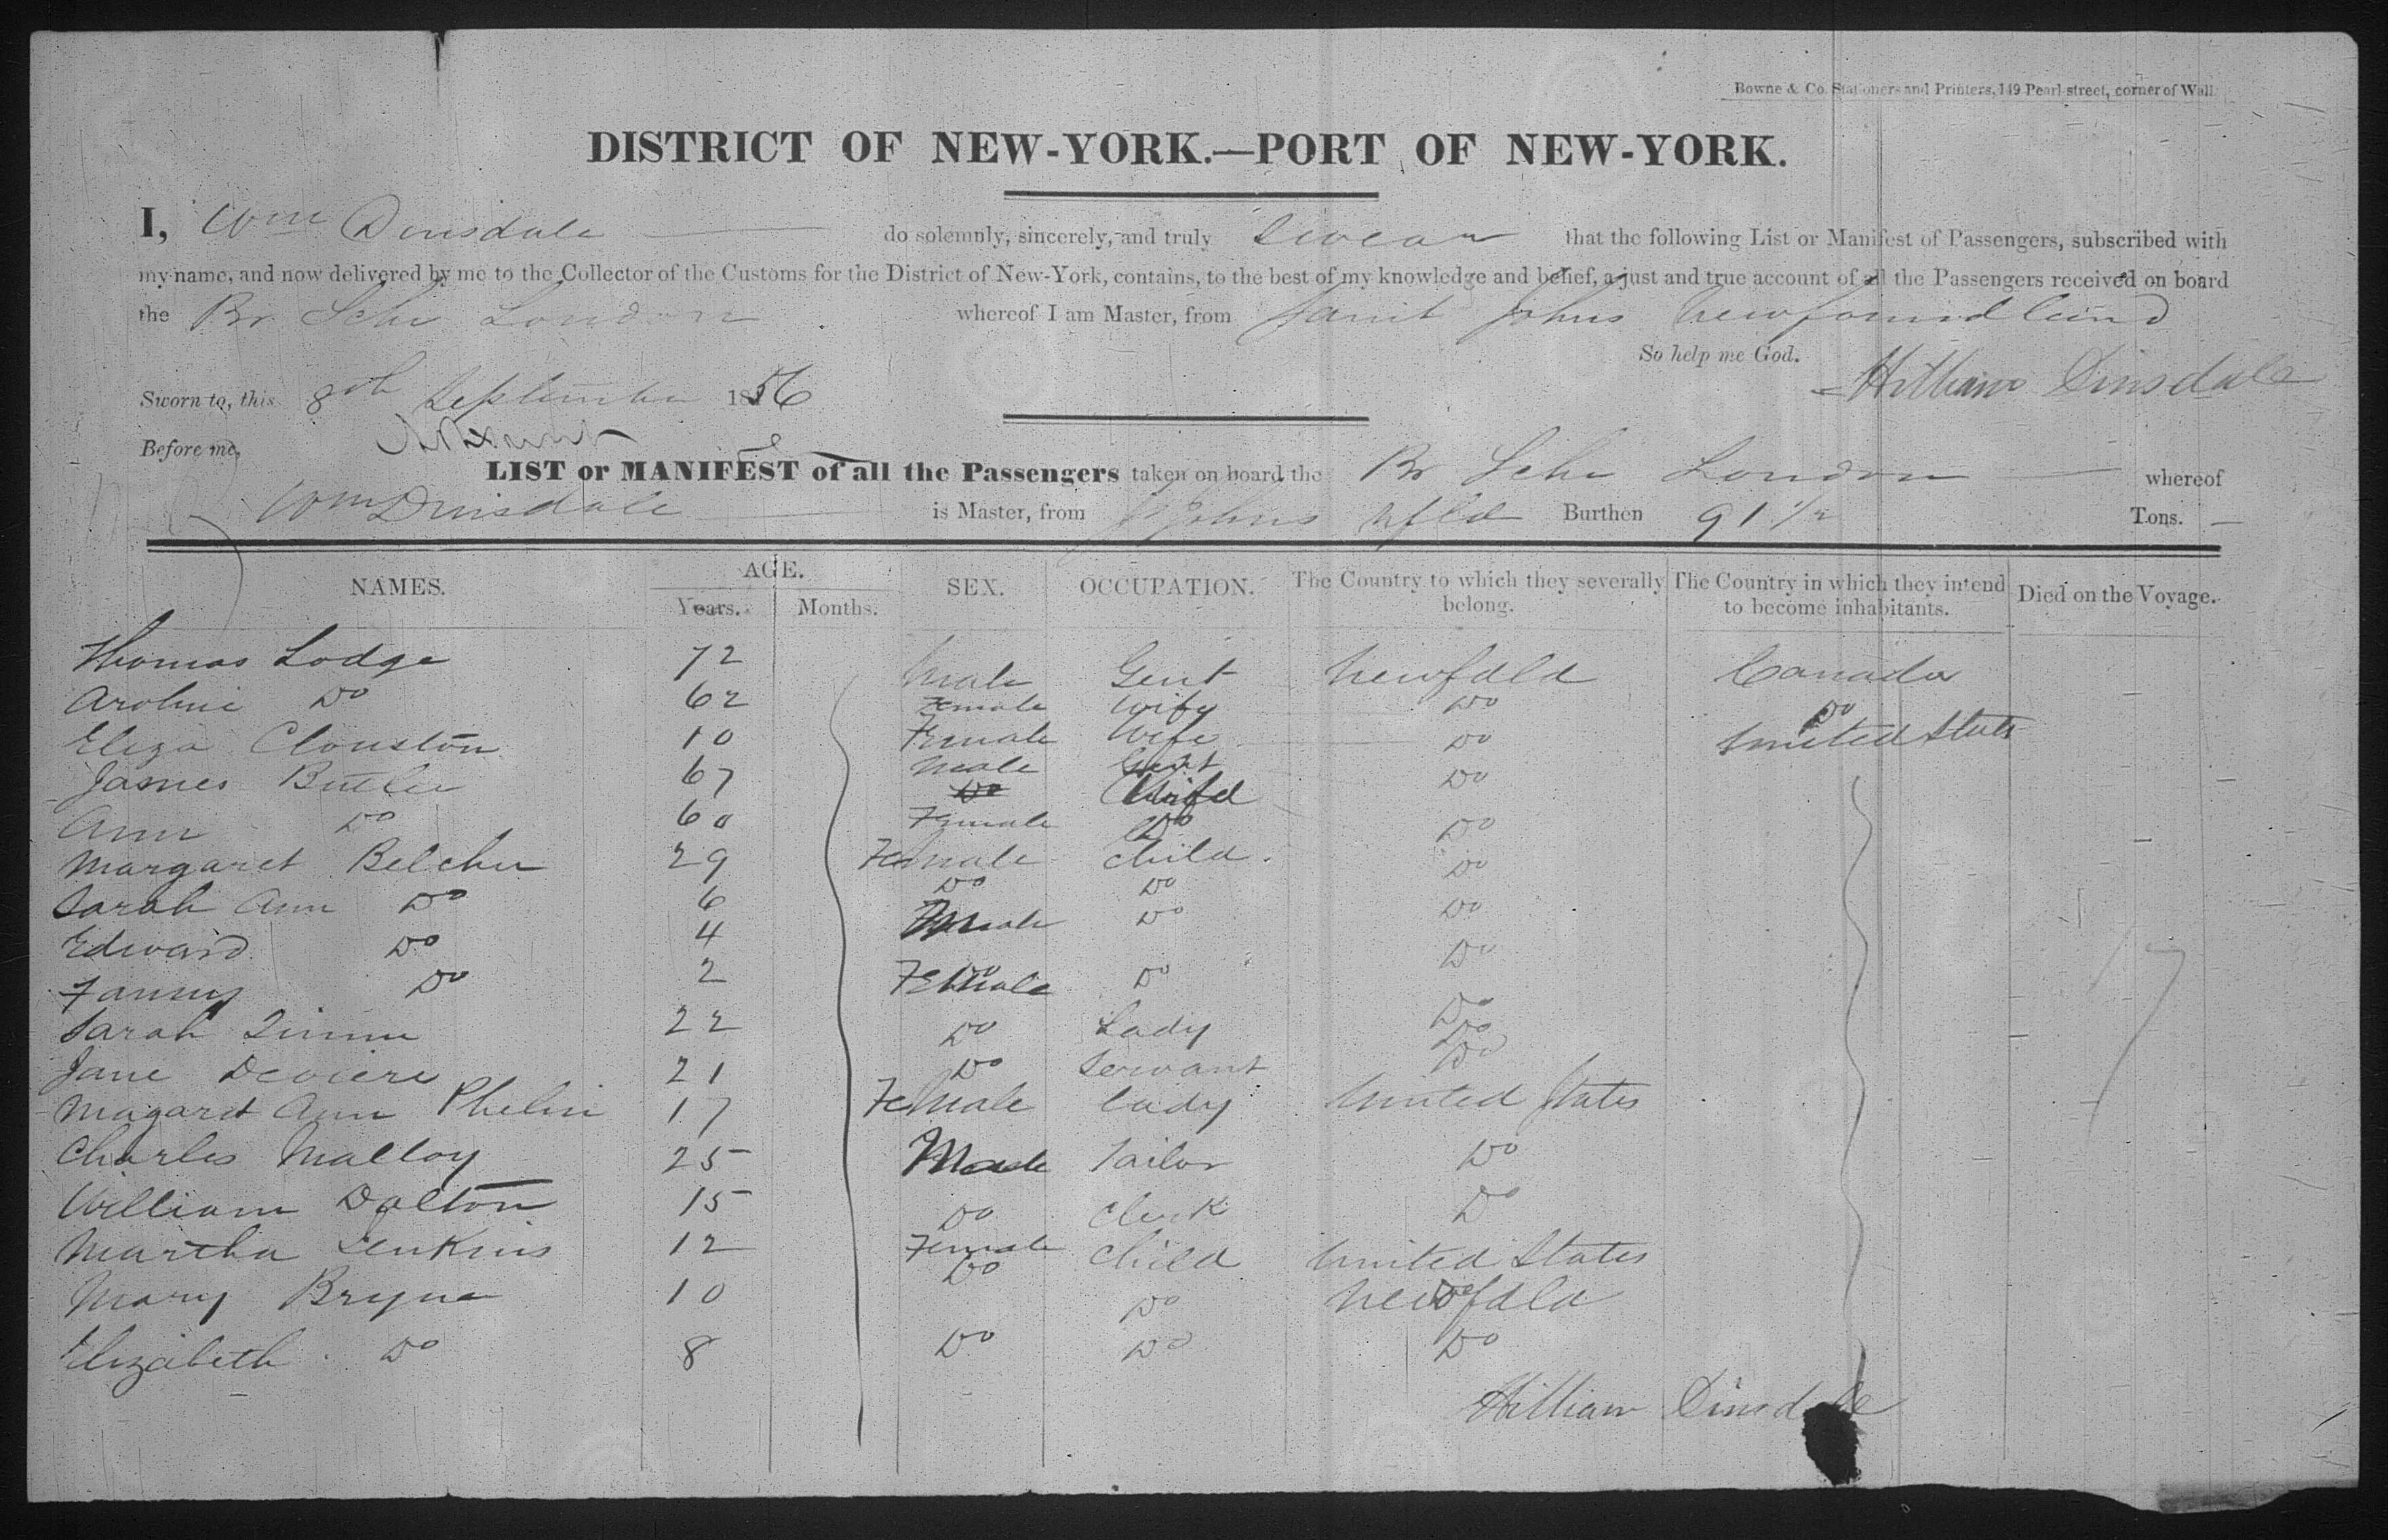 Bowne & Co. Stationers and Printers, 149 Pearl street, corner of Wall.
DISTRICT OF NEW-YORK.—PORT OF NEW-YORK.
I, Wm Dinsdale do solemnly, sincerely, and truly swear that the following List or Manifest of Passengers, subscribed with
my name, and now delivered by me to the Collector of the Customs for the District of New-York, contains, to the best of my knowledge and belief, a just and true account of all the Passengers received on board
the Br Schr London whereof I am Master, from Saint Johns Newfoundland
So help me God.
Sworn to, this 8th September 1856 William Dinsdale
Before me,
LIST or MANIFEST of all the Passengers taken on board the Br Schr London whereof
Wm Dinsdale is Master, from St Johns Nfld Burthen 91 1/2 Tons.
NAMES. AGE. Years. Months. SEX. OCCUPATION. The Country to which they severally belong. The Country in which they intend to become inhabitants. Died on the Voyage.
Thomas Lodge 72 Male Gent Newfdld Canada
Do 62 Female Wife Do Do
Eliza Clouston 10 Female Wife Do United States
James Butler 67 Male Gent Do
Ann Do 60 Do Female Child Do
Margaret Belcher 29 Female Child Do
Sarah Ann Do 6 Do Do Do
Edward Do 4 Male Do Do
Fanny Do 2 Female Do Do
Sarah 22 Do Lady Do
Jane Deviere 21 Do Servant Do
Magaret Ann Phelin 17 Female Lady United States
Charles Malloy 25 Male Tailor Do
William Dalton 15 Do Clerk Do
Martha Jenkins 12 Female Child United States
Mary Bryne 10 Do Do Newfdld
Elizabeth Do 8 Do Do Do
William Dinsdale
17